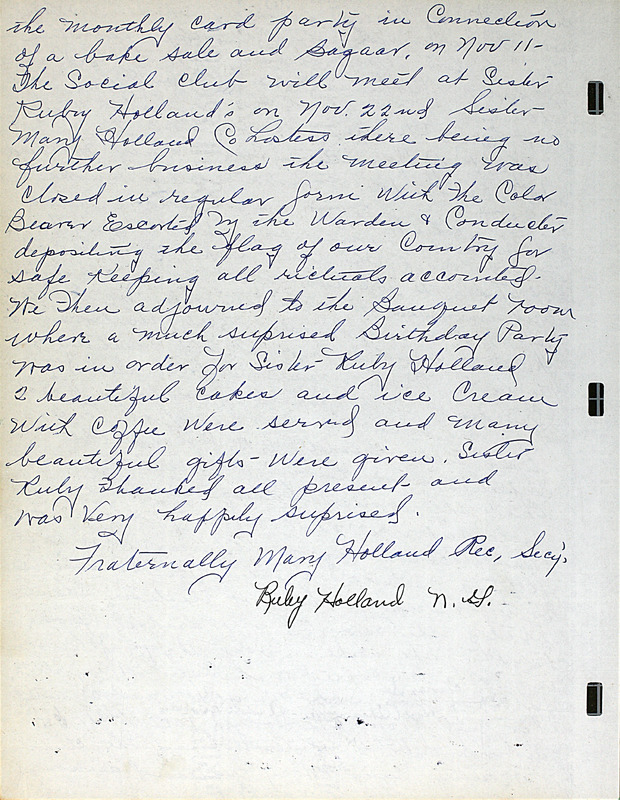 the monthly card party in Connection
of a bake sale and Bagaar. on Nov 11-
The Social Club will meet at Sister
Ruby Holland's on Nov. 22nd Sister
Mary Holland Co Hostess there being no
further business the meeting was
Closed in regular form With The Color
Bearer Escorted by the Warden & Conducter
depositing the flag of our Country for
safe keeping all rictuals accounted.
We Then adjourned to the Banquet room
where a much suprised Birthday Party
was in order for Sister Ruby Holland
2 beautiful cakes and ice Cream
With Coffee Were served and Many
beautiful gifts Were given. Sister
Ruby Thanked all present and
was Very happily suprised.
Fraternally Mary Holland Rec, Secy.
Ruby Holland N. G.